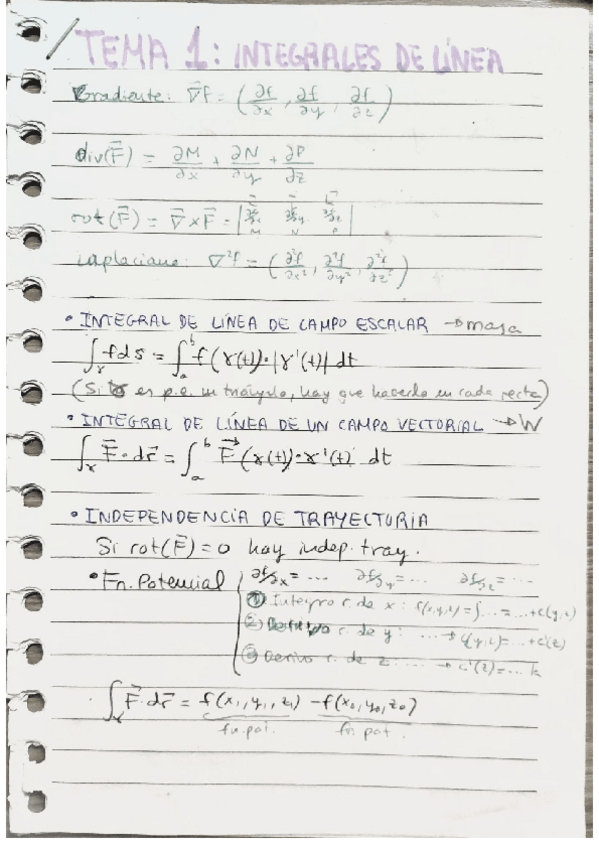 TEMA 1: INTEGRALES DE LÍNEA
Gradiente: ∇f = (∂f/∂x, ∂f/∂y, ∂f/∂z)
div(F⃗) = ∂M/∂x + ∂N/∂y + ∂P/∂z
rot(F⃗) = ∇⃗ × F⃗ =
M N P
Laplaciano: ∇²f = (∂²f/∂x², ∂²f/∂y², ∂²f/∂z²)
• INTEGRAL DE LÍNEA DE CAMPO ESCALAR → masa
∫γ f ds = ∫ₐᵇ f(γ(t))·|γ'(t)| dt
(Si es p.e. un triángulo, hay que hacerlo en cada recta)
• INTEGRAL DE LÍNEA DE UN CAMPO VECTORIAL → W
∫γ F⃗·dr⃗ = ∫ₐᵇ F⃗(γ(t))·γ'(t) dt
• INDEPENDENCIA DE TRAYECTORIA
Si rot(F⃗) = 0 hay indep. tray.
• Fn. Potencial { ∂f/∂x = ... ∂f/∂y = ... ∂f/∂z = ...
① Integro r. de x: f(x,y,z) = ∫... = ... + c(y,z)
② r. de y: ... → c(y,z) = ... + c(z)
③ Derivo r. de z ... → c'(z) = ... k
∫γ F⃗·dr⃗ = f(x₁, y₁, z₁) − f(x₀, y₀, z₀)
fn. pot. fn. pot.